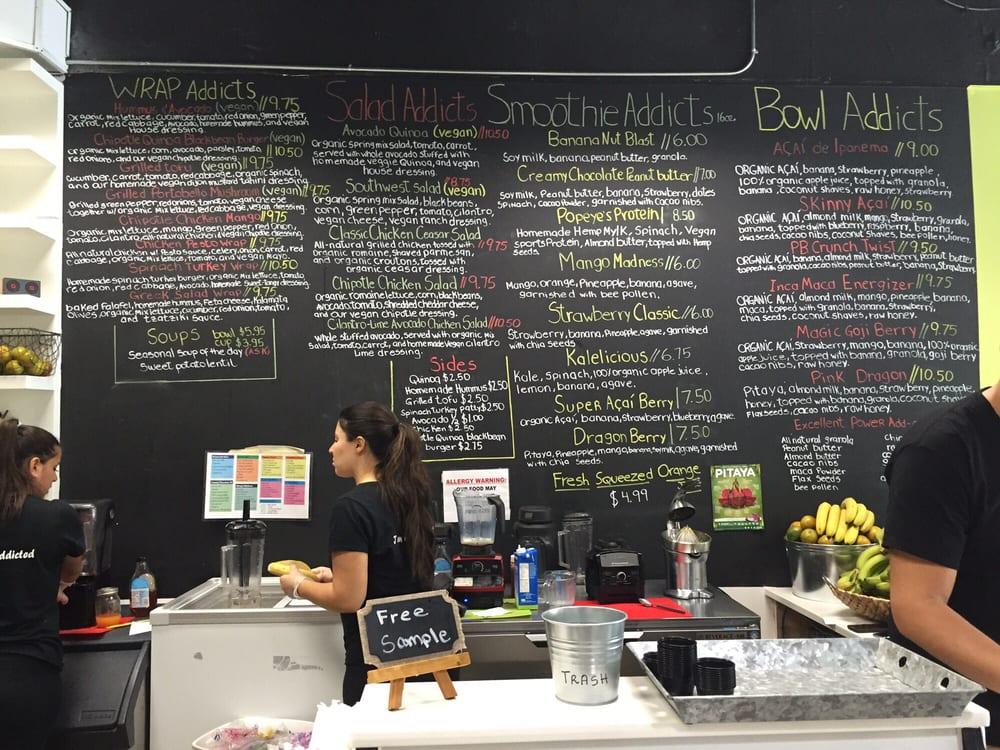 WRAP Addicts
Hummus & Avocado (vegan)//9.75
Organic mix lettuce, cucumber, tomato, red onion, green pepper,
carrot, red cabbage, avocado, homemade hummus, and vegan
house dressing.
Chipotle Quinoa Blackbean Burger (vegan)
organic mix lettuce, corn, avocado, parsley, tomato, //10.50
red onions, and our vegan chipotle dressing.
Grilled tofu (vegan)//9.75
cucumber, carrot, tomato, red cabbage, organic spinach,
and our homemade vegan dijon mustard tahini dressing
Grilled Portobello Mushroom (vegan)//9.75
Grilled green pepper, red onions, tomato, vegan cheese
together w/ organic mix lettuce, red cabbage,
Chipotle Chicken Mango//9.75
Organic mix lettuce, mango, green pepper, red onion,
Chicken Pesto Wrap//9.75
Spinach Turkey Wrap//10.50
Homemade spinach turkey burger, organic mix lettuce, tomato,
Greek Salad Wrap//9.75
baked Falafel, homemade hummus, Feta cheese, kalamata
olives, organic mix lettuce, cucumber, red onion, tomato,
and tzatziki sauce.
Soups bowl $5.95
cup $3.95
Seasonal soup of the day (ASK)
Sweet potato lentil
Salad Addicts
Avocado Quinoa (vegan)//10.50
Organic spring mix salad, tomato, carrot,
served with whole avocado stuffed with
homemade veggie Quinoa, and vegan
house dressing.
Southwest salad //8.75
(vegan)
Organic spring mix salad, black beans,
corn, green pepper, tomato, cilantro,
vegan cheese, vegan ranch dressing.
Classic Chicken Ceasar Salad
All-natural grilled chicken tossed with //9.75
organic romaine, shaved parmesan,
and organic croutons, tossed with
organic ceasar dressing.
Chipotle Chicken Salad//9.75
organic romaine lettuce, corn, black beans,
Avocado, tomato, Shredded cheddar cheese,
and our vegan chipotle dressing.
Cilantro-Lime Avocado Chicken Salad//10.50
Whole stuffed avocado, served with organic mix
Salad, tomato, carrot, and homemade vegan Cilantro
Lime dressing.
Sides
Quinoa $2.50
Homemade Hummus $2.50
Grilled tofu $2.50
Spinach Turkey patty $2.50
Avocado ½ $1.00
Chicken $2.50
Quinoa blackbean
burger $2.75
Smoothie Addicts 16oz.
Banana Nut Blast //6.00
Soy milk, banana, peanut butter, granola.
Creamy Chocolate Peanut butter//7.00
Soymilk, Peanut butter, banana, strawberry, dates
Spinach, cacao powder, garnished with Cacao nibs.
Popeye's Protein| 8.50
Homemade Hemp Mylk, Spinach, Vegan
sports Protein, Almond butter, topped with Hemp
Seeds.
Mango Madness//6.00
Mango, orange, Pineapple, banana, agave,
garnished with bee pollen.
Strawberry Classic//6.00
Strawberry, banana, Pineapple, agave, garnished
with chia seeds
Kalelicious//6.75
Kale, Spinach, 100% organic apple juice,
lemon, banana, agave.
Super Açaí Berry|7.50
organic Açaí, banana, strawberry, blueberry, agave.
Dragon Berry|7.50
Pitaya, Pineapple, mango, banana, soymilk, agave, garnished
with chia seeds.
Fresh Squeezed Orange
$4.99
Bowl Addicts
AÇAÍ de Ipanema //9.00
ORGANIC AÇAÍ, banana, strawberry, pineapple,
100% organic apple juice, topped with granola,
banana, coconut shaves, raw honey, strawberry.
SKinny Açaí//10.50
ORGANIC AÇAÍ, almond milk, mango, strawberry, granola,
banana, topped with blueberry, raspberry, banana,
chia seeds, cacao nibs, coconut shaves, bee pollen, honey.
PB Crunch Twist//9.50
ORGANIC AÇAÍ, banana, almond milk, strawberry, peanut butter
topped with granola, cacao nibs, peanut butter, banana, strawberry.
Inca Maca Energizer//9.75
ORGANIC AÇAÍ, almond milk, mango, banana, strawberry,
maca, topped with granola, banana, strawberry,
chia seeds, coconut shaves, raw honey.
Magic Goji Berry//9.75
ORGANIC AÇAÍ, Strawberry, mango, banana, 100% organic
apple juice, topped with banana, granola, goji berry
cacao nibs, raw honey.
Pink Dragon//10.50
Pitaya, almond milk, banana, strawberry, pineapple,
honey, topped with banana, granola, coconut shaves,
Flax seeds, cacao nibs, raw honey.
Excellent Power Add-
All natural granola
Peanut butter
Almond butter
cacao nibs
maca Powder
Flax Seeds
bee pollen
ALLERGY WARNING:
OUR FOOD MAY
PITAYA
ddicted
I'm
Free
Sample
TRASH